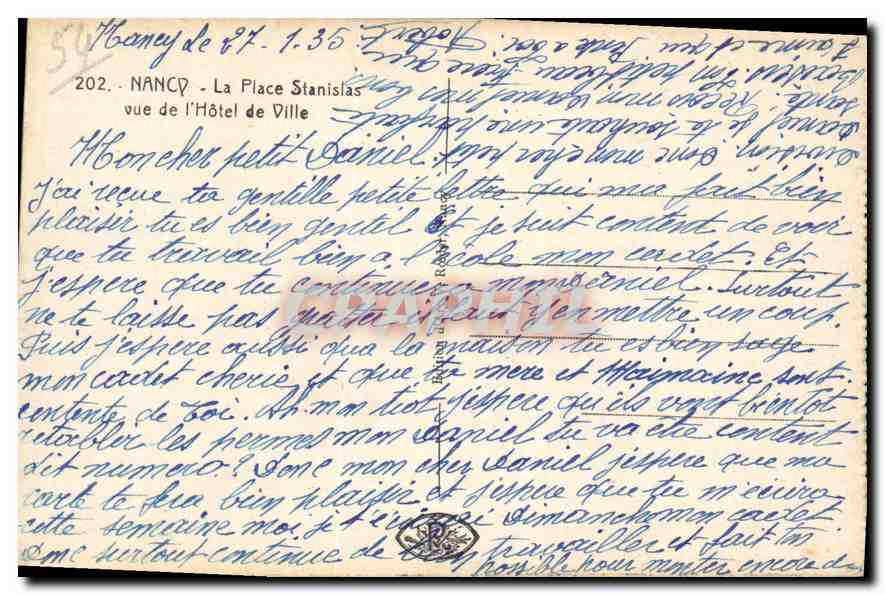 54
Nancy le 27-1-35
202. - NANCY - La Place Stanislas
vue de l'Hôtel de Ville
Mon cher petit Daniel.
J'ai reçue ta gentille petite lettre qui ma fait bien
plaisir tu es bien gentil et je suit content de voir
que tu travail bien a l'école mon cadet. Et
j'espere que tu continuera mon Daniel. Surtout
ne te laisse pas il faut y en mettre un coup.
Puis j'espere aussi que la maison tu es bien sage
mon cadet cherie et que ta mere et Maimaine sont
contente de toi. Ah mon tiot j'espere qu'ils vont bientot
retabler les permes mon Daniel tu va etre content
dit numero? Donc mon cher Daniel j'espere que ma
carte te fera bien plaisir et j'espere que tu m'écrira
cette semaine moi je t'écrirai Dimanche mon cadet
Donc surtout continue de bien travailler et fait ton
possible pour monter encore de
Daniel je te souhaite une parfaite
santé. Reçois mon
Robert
CPAPHIL